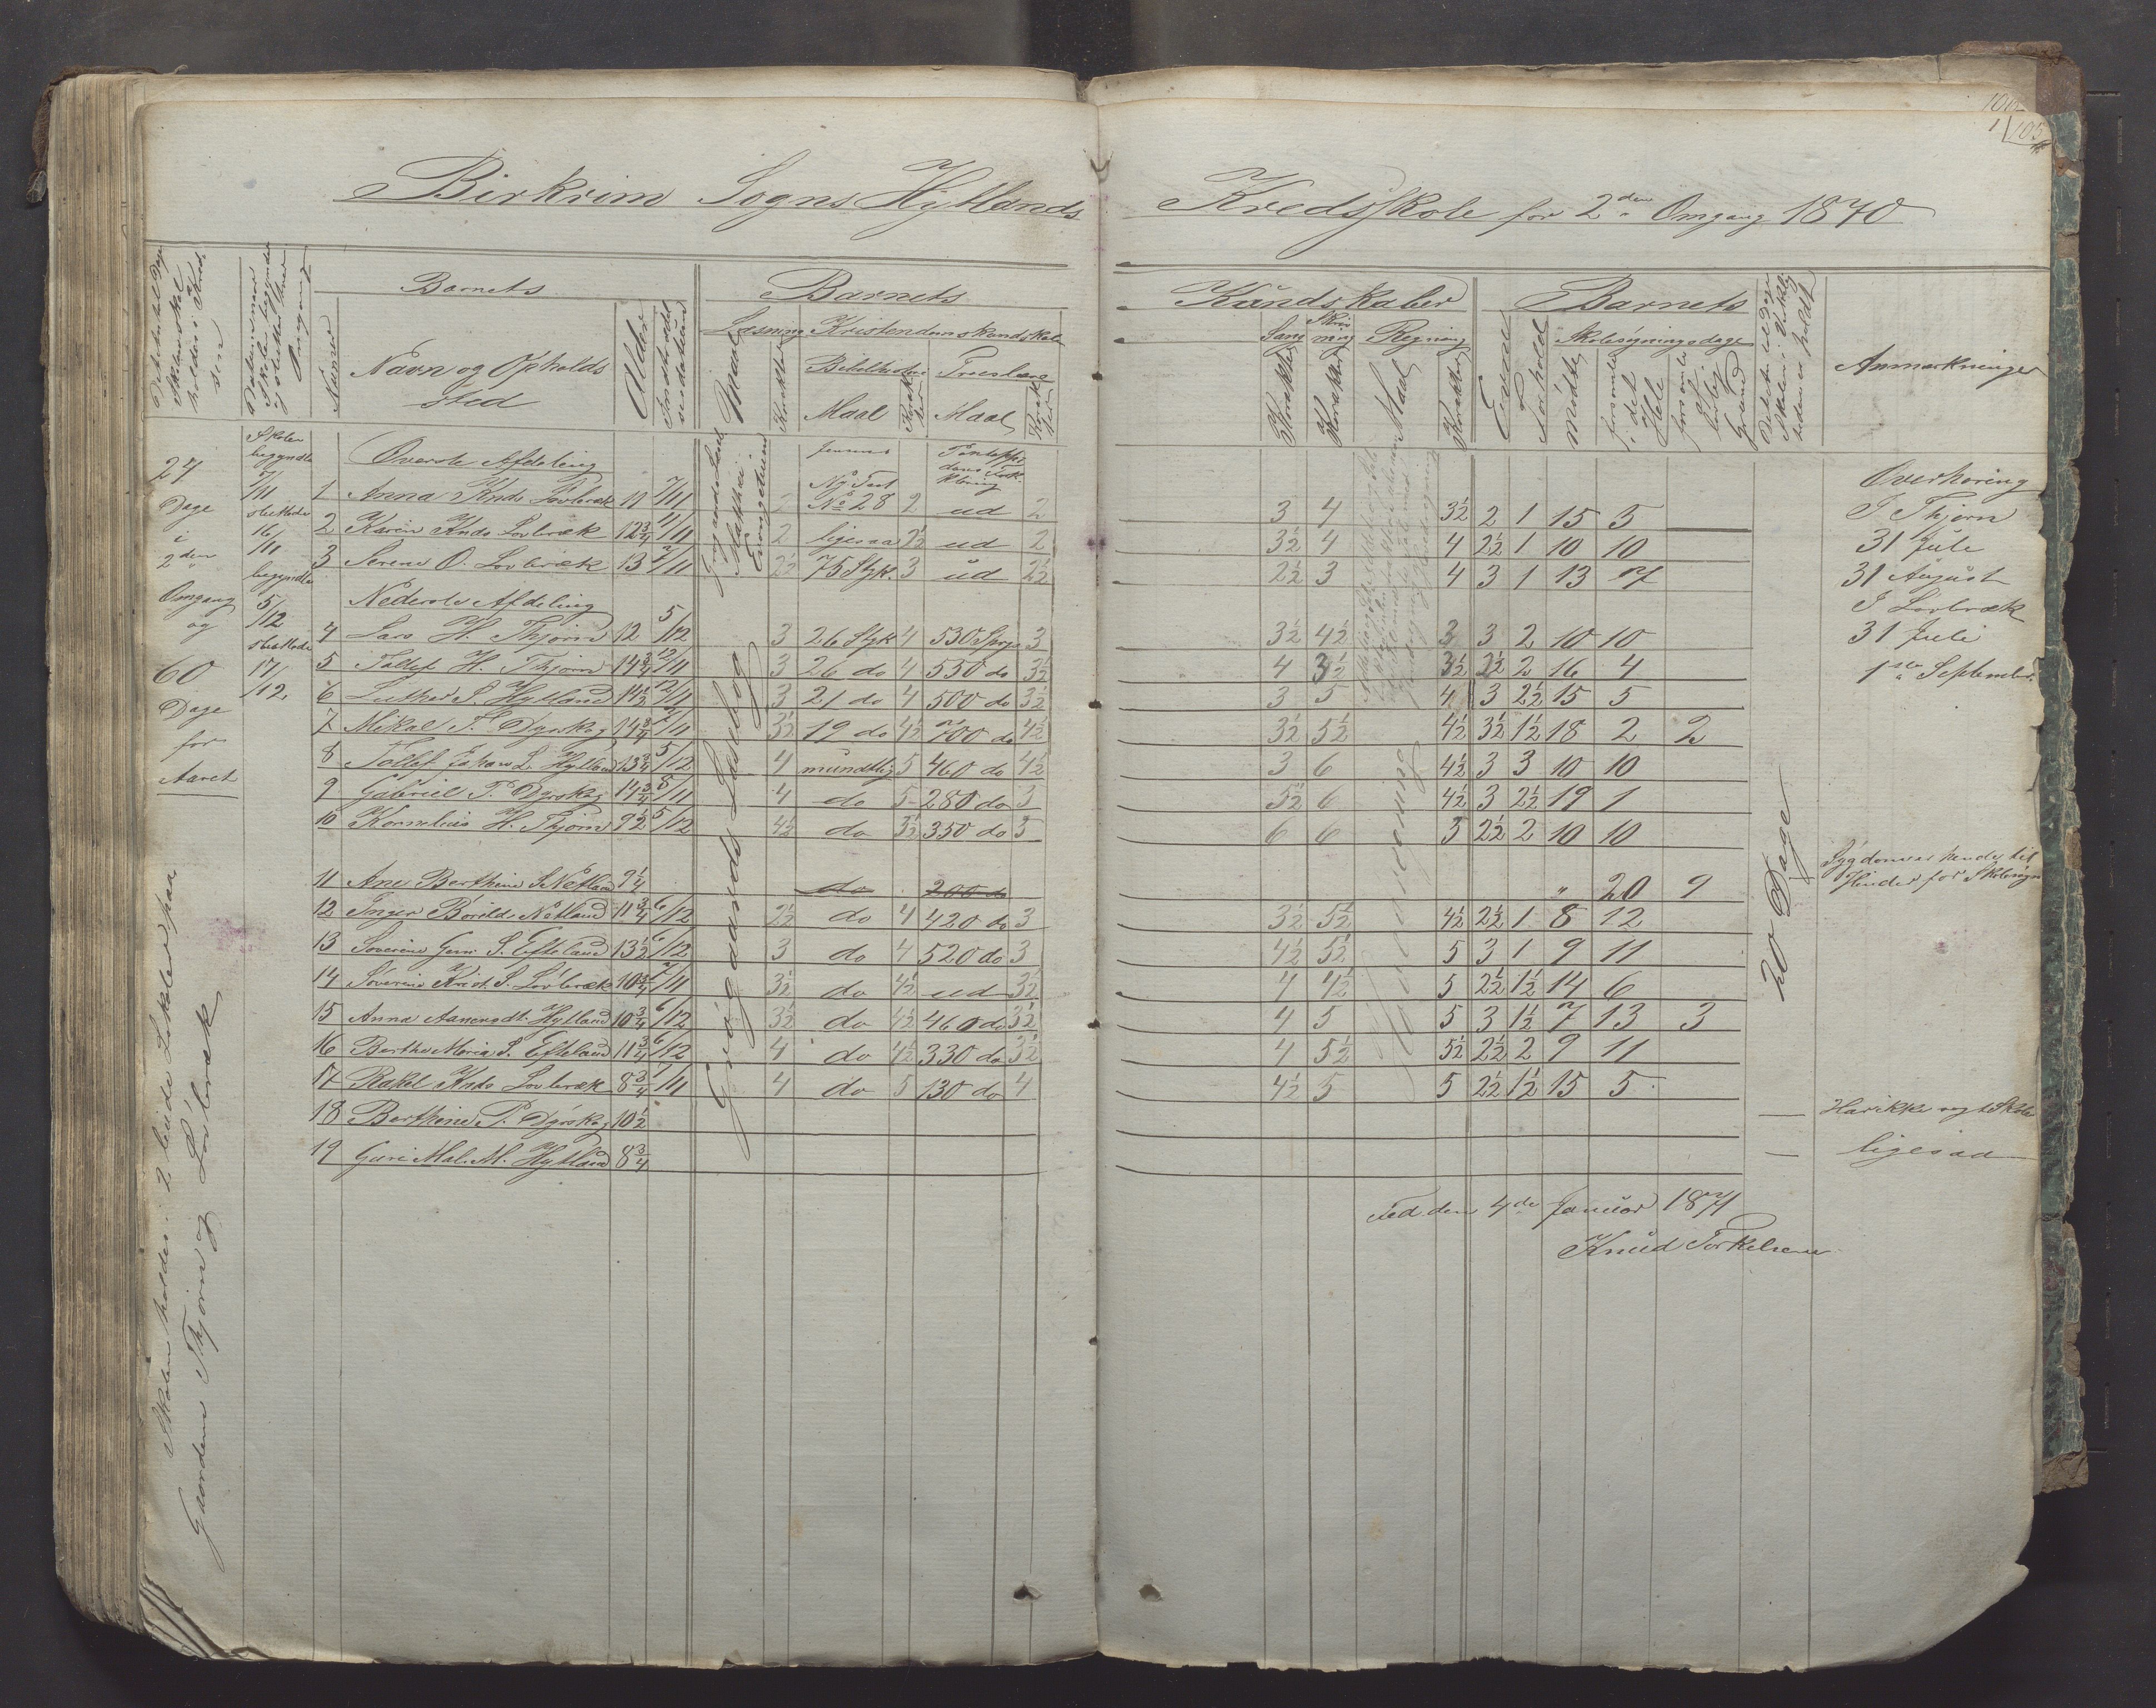 106
105
Birkrim Sogns Hytlands Kredsskole for 2den Omgang 1870
Barnets
Barnets
Kundskaber
Barnets
Læsning Kristendomskundskab
Sang Skrivning Regning
Skolesøgningsdage
Anmærkninger
Numer
Navn og Opholdssted
Alder
Maal
Karakter
Bibelhistorie
Troeslære
Maal
Maal
Karakter
Karakter
Maal
Karakter
Evner
Forhold
mødte
forsømte i det Hele
forsømte af lovlig Grund
Skolen begyndte 7/11 sluttede 16/11 begyndte 5/12 sluttede 17/12
24 Dage i 2den Omgang og 60 Dage for Aaret
Øverste Afdeling
1 Anna Knds Lovbræk 11 7/11 2 Ny Test No 28 2 ud 2 3 4 3½ 2 1 15 5
2 Karen Knds Lovbræk 12¾ 11/11 2 ligesaa 2½ ud 2 3½ 4 4 2½ 1 10 10
3 Serene O. Lovbræk 13 7/11 2½ 75 Styk. 3 ud 2½ 2½ 3 4 3 1 13 7
Nederste Afdeling
4 Lars H. Thjørn 12 5/12 3 26 Styk 4 530 Spgs 3 3½ 4½ 3 3 2 10 10
5 Tollef H. Thjørn 14¾ 12/11 3 26 do 4 550 do 3½ 4 3½ 3½ 3½ 2 16 4
6 Luther S. Hytland 14½ 12/11 3 21 do 4 500 do 3½ 3 5 4 3 2½ 15 5
7 Mikal T. Dyrskog 14¾ 7/11 3½ 19 do 4½ 700 do 4½ 3½ 5½ 4½ 3½ 1½ 18 2 2
8 Tollef Johan L. Hytland 13¾ 5/12 4 mundtlig 5 460 do 4½ 3 6 4½ 3 3 10 10
9 Gabriel P. Dyrskog 14¾ 8/11 4 do 5 280 do 3 5½ 6 4½ 3 2½ 19 1
10 Kornelius H. Thjørn 9½ 5/12 4½ do 5½ 350 do 5 6 6 5 2½ 2 10 10
11 Ane Berthine S. Netland 9¼ do 200 do " 20 9
12 Inger Borilde Netland 11¾ 6/12 2½ do 4 420 do 3 3½ 5½ 4½ 2½ 1 8 12
13 Soverine Guri S. Efteland 13½ 6/12 3 do 4 520 do 3 4½ 5½ 5 3 1 9 11
14 Soverine Krist. S. Lovbræk 10¾ 7/11 3½ do 4½ ud 3½ 4 4½ 5 2½ 1½ 14 6
15 Anna Aanensdt. Hytland 10¾ 6/12 3½ do 4½ 460 do 3½ 4 5 5 3 1½ 7 13 3
16 Berthe Maria S. Efteland 11¾ 6/12 4 do 4½ 330 do 3½ 4 5½ 5½ 2½ 2 9 11
17 Rakel Knds Lovbræk 8¾ 7/11 4 do 5 130 do 4 4½ 5 5 2½ 1½ 15 5
18 Berthine P. Dyrskog 10½ — Har ikke søgt Skolen
19 Guri Mal. M. Hytland 8¾ — ligesaa
Jngaardands Læsebog
Hovedregning
20 Dage
Overhøring
I Thjørn
31 Juli
31 August
I Lovbræk
31 Juli
1ste September
Sygdom var hendes til
Hinder for Skolesøgn
Skolen holdes i 2 leiede Lokaler paa
Gaardene Thjørn og Lovbræk
Fed. den 4de Januar 1871
Knud Torkelsen